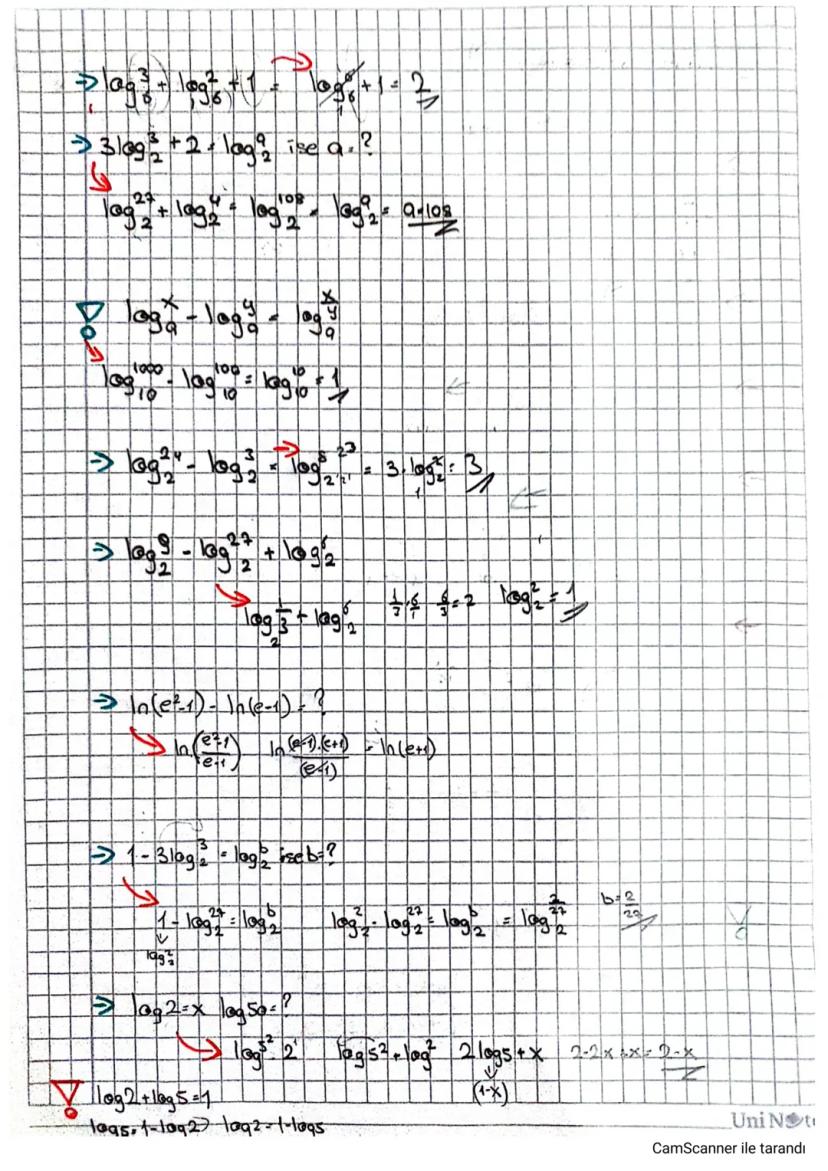 ⇒ log₆³ + log₆² + 1 = log₆⁶ + 1 = 2
1
⇒ 3log₂³ + 2 = log₂ᵃ ise a = ?
log₂²⁷ + log₂⁴ = log₂¹⁰⁸ = log₂ᵃ = a=108
logₐˣ - logₐʸ = logₐ^(x/y)
log₁₀¹⁰⁰⁰ - log₁₀¹⁰⁰ = log₁₀¹⁰ = 1
⇒ log₂²⁴ - log₂³ = log₂⁸ 2³ = 3 . log₂² = 3
1
⇒ log₂⁹ - log₂²⁷ + log₂⁶
log₂^(1/3) + log₂⁶ 1/3 . 6/1 6/3 = 2 log₂² = 1
⇒ ln(e²-1) - ln(e-1) = ?
ln(e²-1/e-1) ln (e-1).(e+1)/(e-1) = ln(e+1)
⇒ 1 - 3log₂³ = log₂ᵇ ise b=?
1 - log₂²⁷ = log₂ᵇ log₂² - log₂²⁷ = log₂ᵇ = log₂^(2/27) b=2/27
log₂²
⇒ log2=x log50=?
log5².2¹ log5² + log² 2log5+x 2-2x+x = 2-x
(1-x)
log2+log5=1
log5=1-log2 log2=1-log5
UniNot
CamScanner ile tarandı